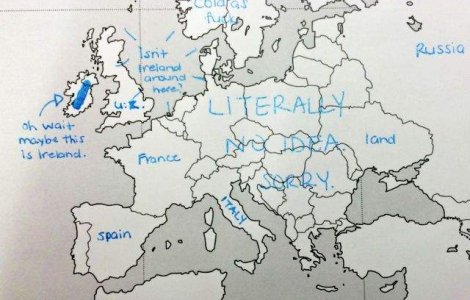 Cold as
fuck
Russia
Isn't
Ireland
around
here?
u.k.
LITERALLY
oh wait
maybe this
is Ireland.
NO IDEA
land
France
SORRY.
ITALY
Spain